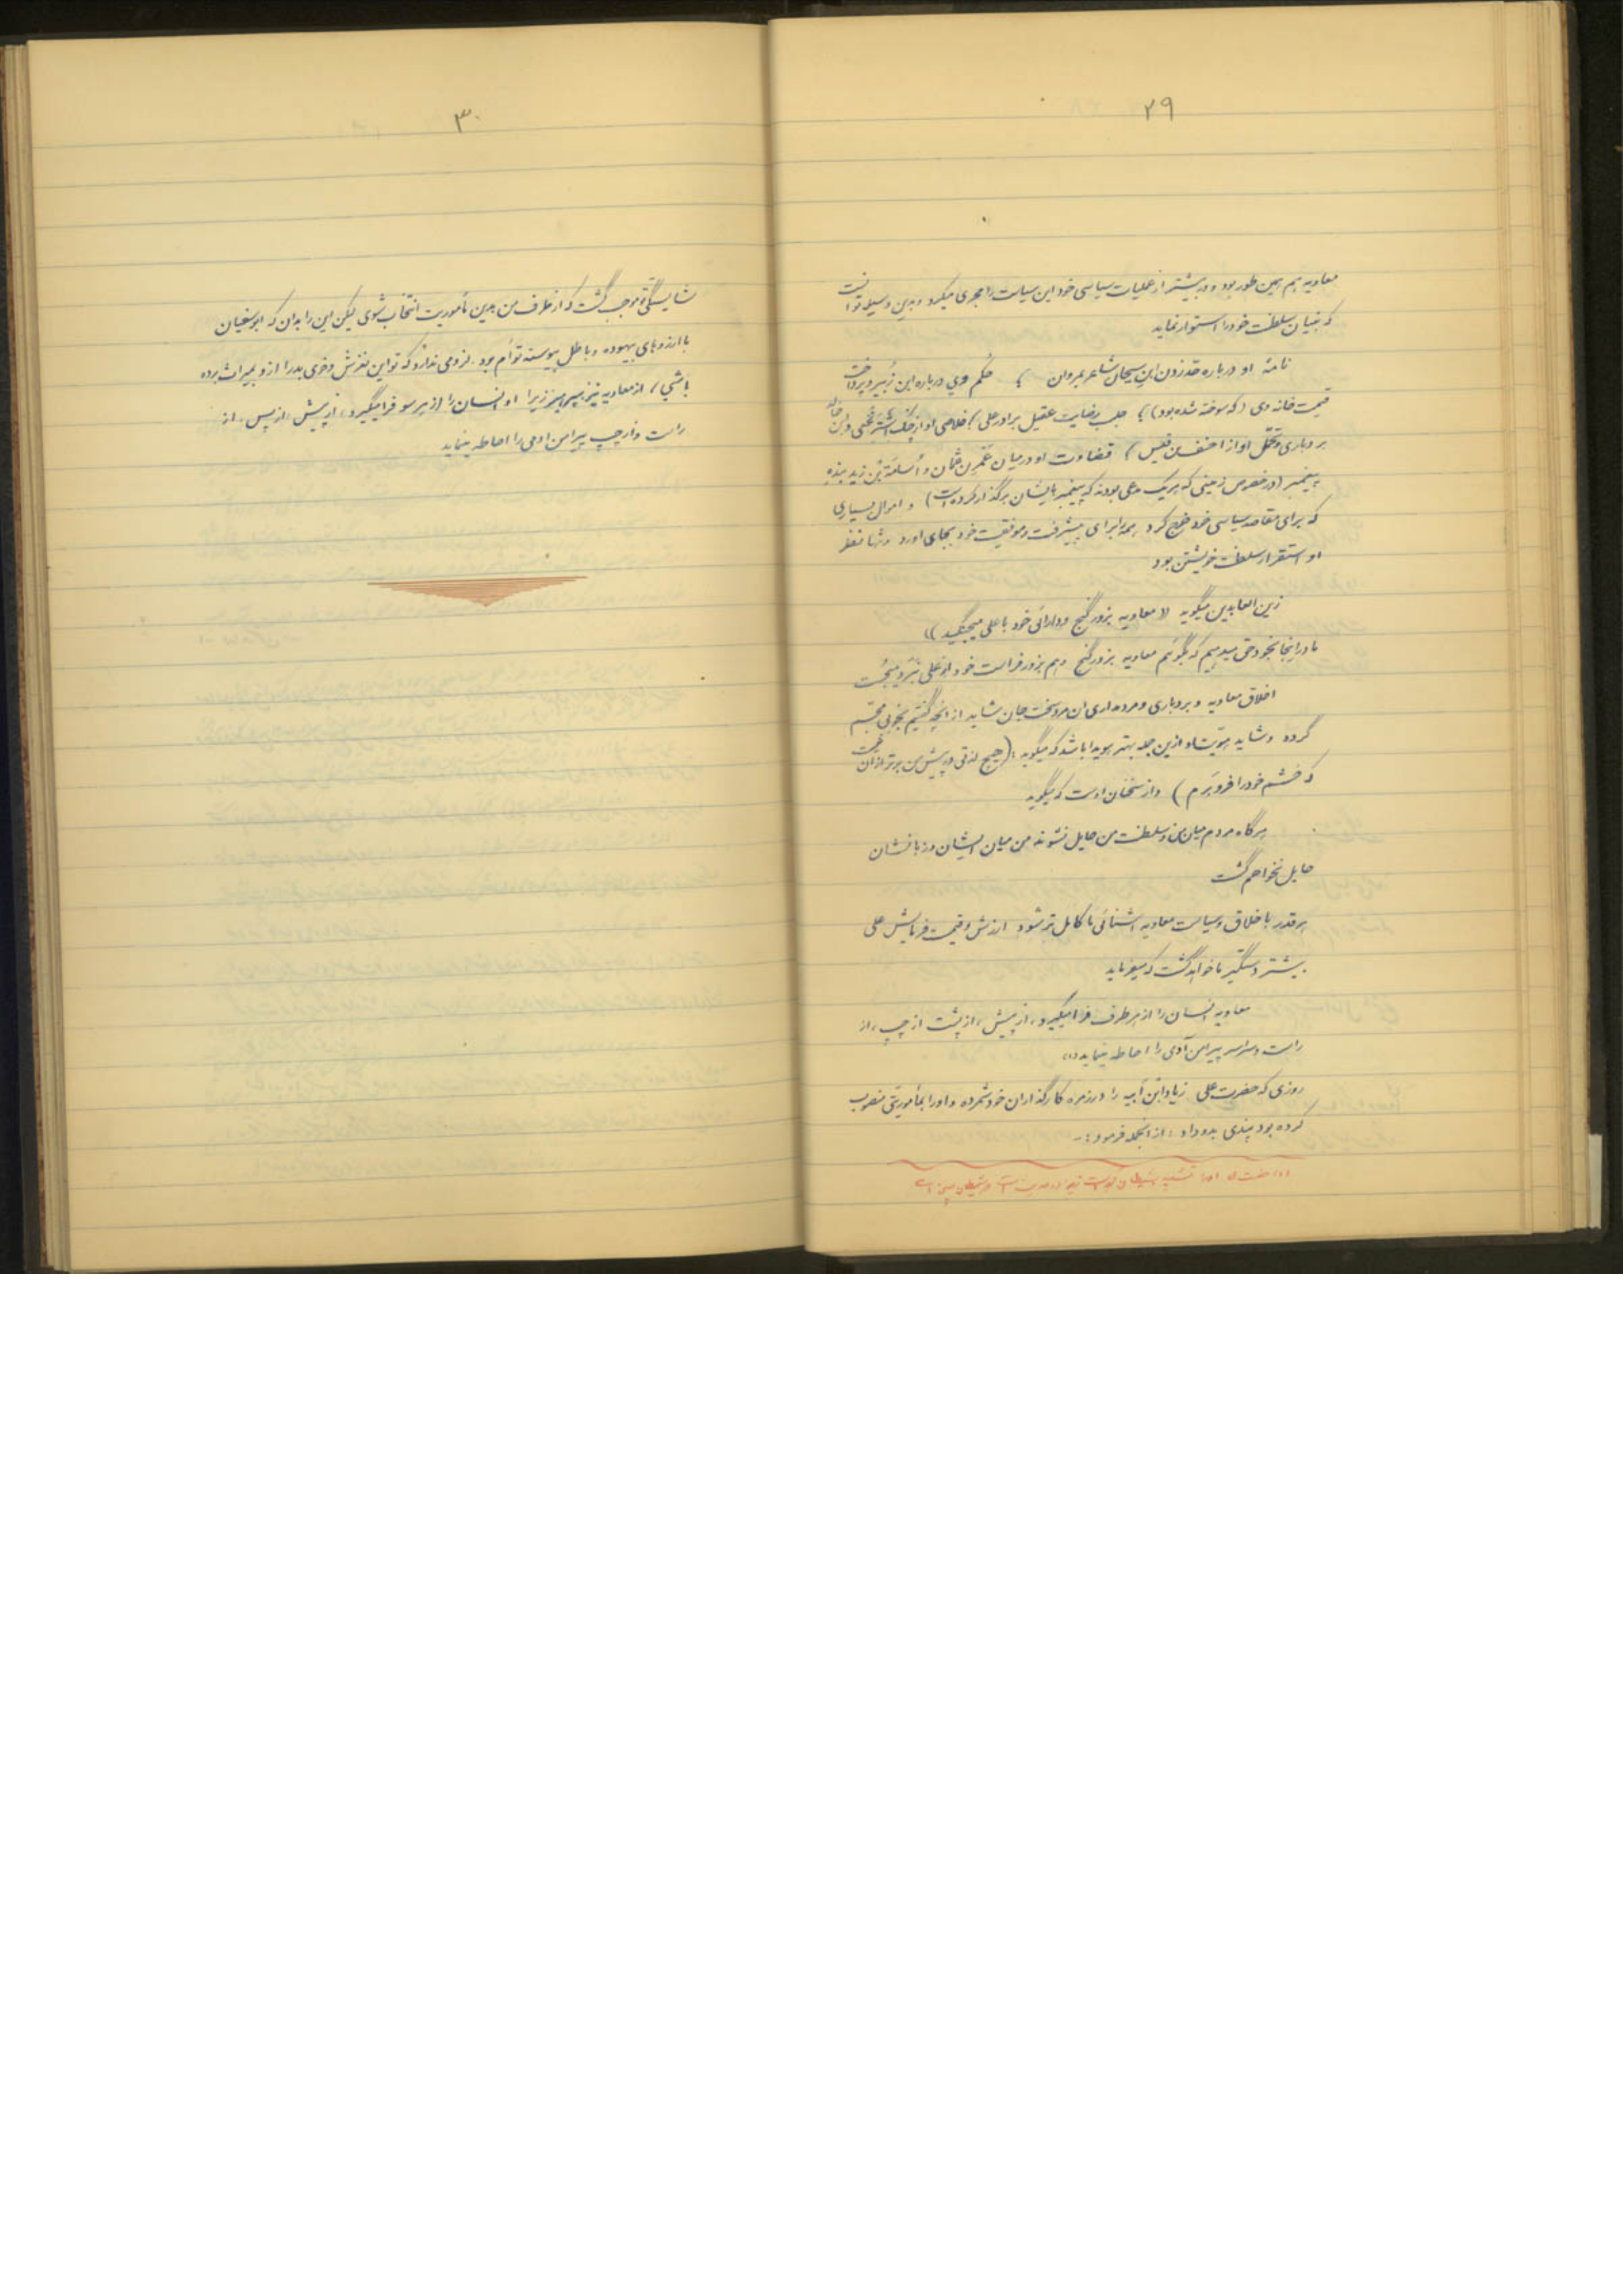 ۲۹
معاویه هم همین طور بود و در بیشتر از عملیات سیاسی خود این سیاست را مجری میکرد و بدین وسیله توانست
که بنیان سلطنت خود را استوار نماید
نامهٔ او درباره حدّ زدن ابن سیحان شاعر بمروان ؛ حکم وی درباره ابن زُبیر و پرداخت
قیمت خانه وی (که سوخته شده بود) ؛ جلب رضایت عقیل برادر علی ؛ خلاصی او از چنگ اشتر نخعی و ابن خالد
بردباری و تحمّل او از احنف بن قیس ؛ قضاوت او در میان عَمرِبن عثمان و اُسامَة بن زید بنده
پیغمبر (در خصوص زمینی که هر یک مدعی بودند که پیغمبر بایشان برگذار کرده است) و اموال بسیاری
که برای مقاصد سیاسی خود خرج کرد همه را برای پیشرفت و موفقیت خود بجای اورد و تنها نظر
او استقرار سلطنت خویشتن بود
زین العابدین میگوید «معاویه بزور گنج و دارائی خود با علی میجنگید»
ما در اینجا بخود حق میدهیم که بگوئیم معاویه بزور گنج و هم بزور فراست خود از علی نبَرد میجُست
اخلاق معاویه و بردباری و مردمداری ان مرد سخت جان شاید از انچه گفتیم بخوبی مجسّم
گردد و شاید هویّت او ازین جمله بهتر هویدا باشد که میگوید: (هیچ لذتی در پیش من برتر از آن نیست
که خشم خود را فرو بَرم) و از سخنان اوست که میگوید
هرگاه مردم میان من و سلطنت من حایل نشوند من میان ایشان و زبانشان
حایل نخواهم گشت
هر قدر با خلاق و سیاست معاویه اشنائی ما کامل تر شود ارزش و قیمت فرمایش علی
بیشتر دستگیر ما خواهد گشت که میفرماید
معاویه انسان را از هر طرف فرا میگیرد، از پیش، از پشت از چپ، از
راست و سراسر پیرامن آدمی را احاطه مینماید (۱)
روزی که حضرت علی زیاد ابن اَبیه را در زمره کارگذاران خود شمرده و اورا بمأموریتی منصوب
کرده بود پندی بدو داد، از انجمله فرمود:-
(۱) حضرت او را تشبیه بشیطان
۳۰
شایستگی تو موجب گشت که از طرف من بدین مأموریت انتخاب شوی لیکن این را بدان که ابوسفیان
با ارزوهای بیهوده و باطل پیوسته توأم بود. لزومی ندارد که تو این لغزش و خوی بد را از و بمیراث برده
باشی؛ از معاویه نیز بپرهیز زیرا او انسان را از هر سو فرا میگیرد، از پیش، از پس، از
راست و از چپ پیرامن ادمی را احاطه مینماید